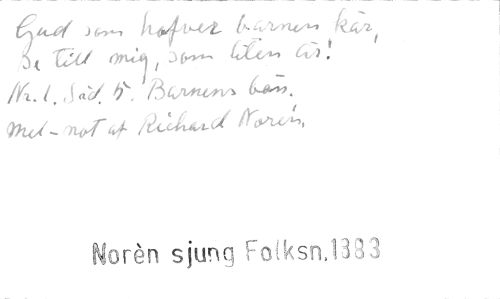 Gud som hafver barnen kär,
Se till mig, som liten är!
Nr. 1. Sid. 5. Barnens bön.
Mel-not af Richard Norén.
Norèn sjung Folksn. 1383